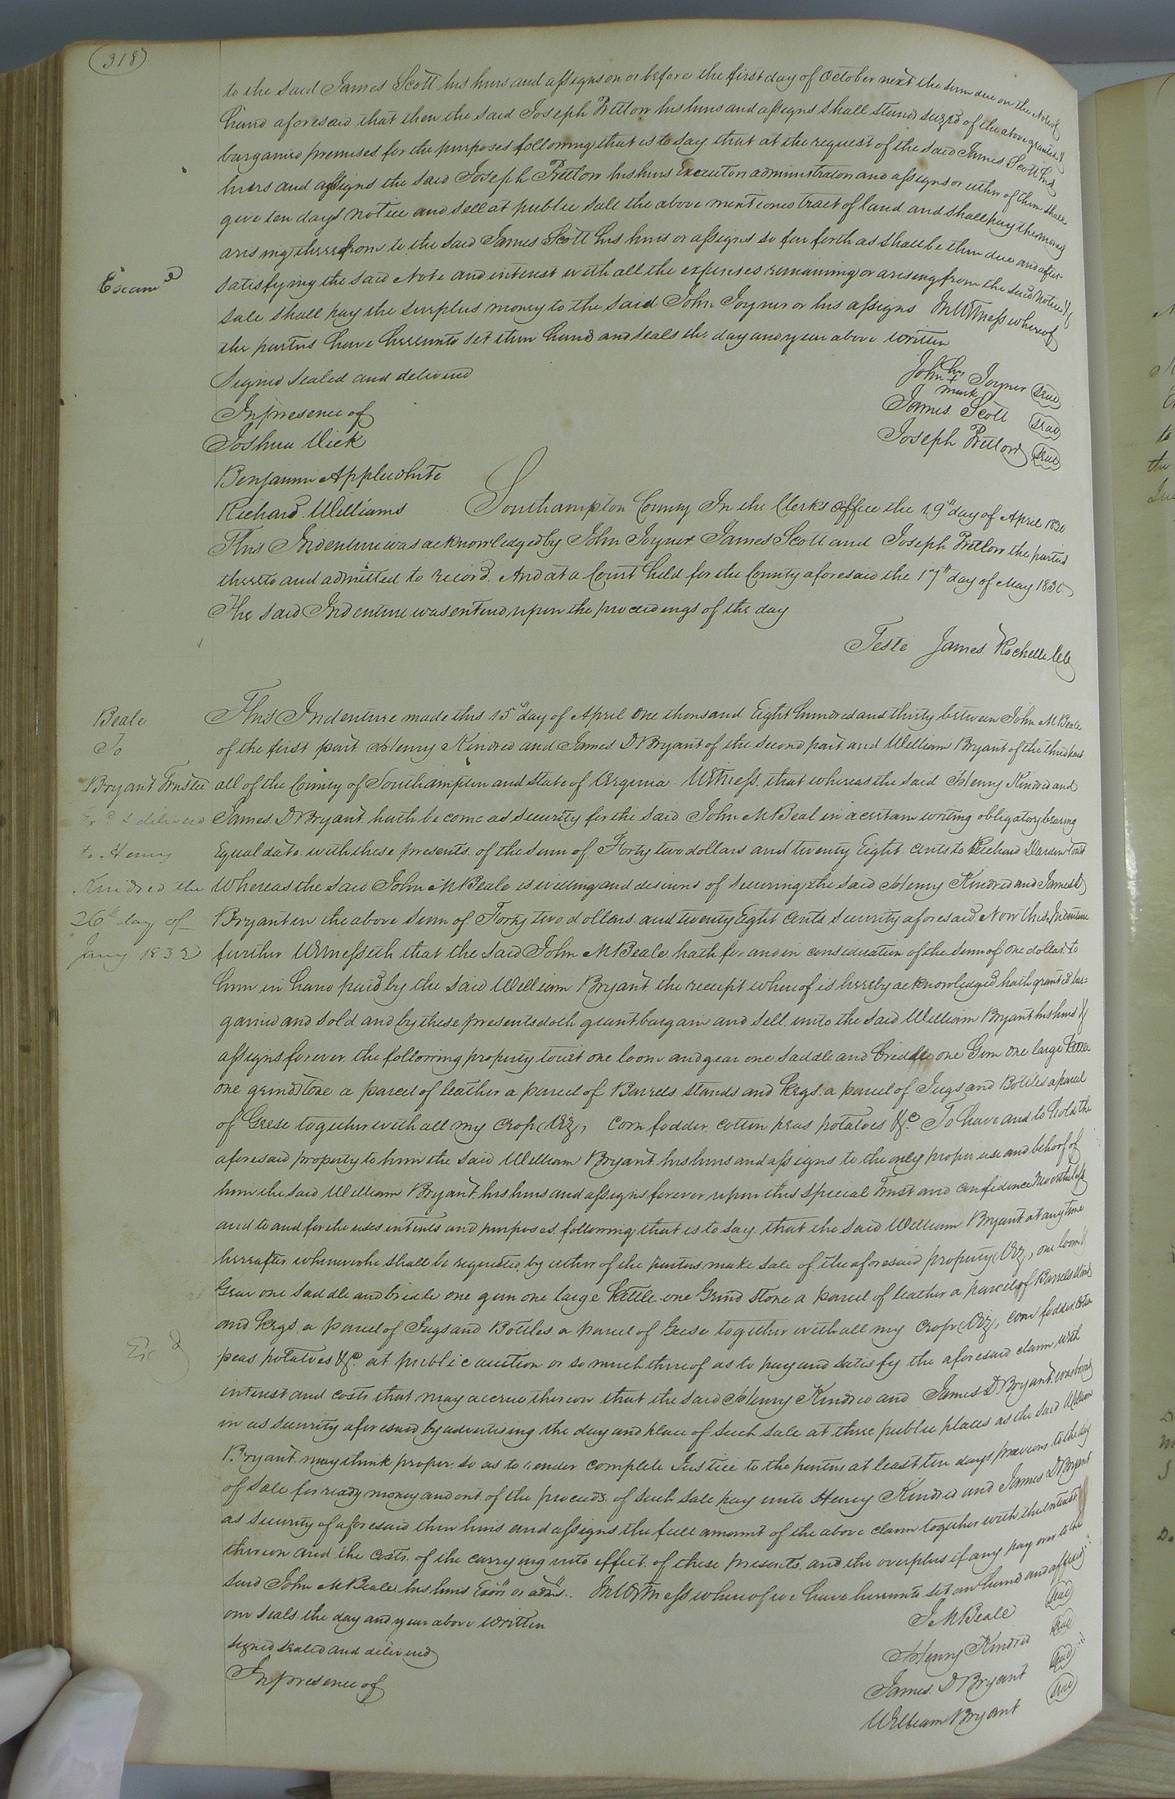 318
to the said James Scott his heirs and assigns on or before the first day of October next the sum due on the Note of
hand aforesaid that then the said Joseph Pretlow his heirs and assigns shall stand seized of the above granted &
bargained premises for the purposes following that is to say that at the request of the said James Scott his
heirs and assigns the said Joseph Pretlow his heirs Executors administrators and assigns or either of them shall
give ten days notice and sell at public sale the above mentioned tract of land and shall pay the money
arising therefrom to the said James Scott his heirs or assigns so far forth as shall be then due and after
Examd
satisfying the said Note and interest with all the expenses remaining or arising from the said Note &
sale shall pay the surplus money to the said John Joyner or his assigns In Witness whereof
the parties have hereunto set their hand and seals the day and year above written
Signed sealed and delivered
In presence of
Joshua Vick
Benjamin Applewhite
Richard Williams
John his X mark Joyner Seal
James Scott Seal
Joseph Pretlow Seal
Southampton County In the Clerks office the 19th day of April 1830
This Indenture was acknowledged by John Joyner James Scott and Joseph Pretlow the parties
thereto and admitted to record. And at a Court held for the County aforesaid the 17th day of May 1830
The said Indenture was entered upon the proceedings of the day
Teste James Rochelle Clk
Beale
To
Bryant Trustee
Exd & delivered
to Henry
Kindred the
26th day of
Jany 1832
This Indenture made this 15th day of April one thousand Eight hundred and thirty between John M Beale
of the first part Henry Kindred and James D Bryant of the second part and William Bryant of the third part
all of the County of Southampton and state of Virginia Witness that whereas the said Henry Kindred and
James D Bryant hath become as security for the said John M Beal in a certain writing obligatory bearing
Equal date with these presents of the sum of Forty two dollars and twenty Eight cents to Richard Darden
Whereas the said John M Beale is willing and desirous of securing the said Henry Kindred and James D
Bryant in the above sum of Forty two dollars and twenty Eight Cents security aforesaid Now this Indenture
further Witnesseth that the said John M Beale hath for and in consideration of the sum of one dollar to
him in hand paid by the said William Bryant the receipt whereof is hereby acknowledged hath granted bar-
gained and sold and by these presents doth grant bargain and sell unto the said William Bryant his heirs &
assigns forever the following property to wit one loom and gear one saddle and bridle one Gun one large Kettle
one grindstone a parcel of leather a parcel of Barrels stands and Kegs a parcel of Jugs and Bottles a parcel
of Geese together with all my crop (Viz) corn fodder cotton peas potatoes &c To have and to hold the
aforesaid property to him the said William Bryant his heirs and assigns to the only proper use and behoof of
him the said William Bryant his heirs and assigns forever upon this special Trust and confidence Nevertheless
and to and for the uses intents and purposes following that is to say that the said William Bryant at any time
hereafter whenever he shall be requested by either of the parties make sale of the aforesaid property (Viz), one loom &
Gear one saddle and bridle one gun one large Kettle one Grind stone a parcel of leather a parcel of Barrels stands
and Kegs a parcel of Jugs and Bottles a parcel of Geese together with all my crop (Viz), corn fodder cotton
Exd
peas potatoes &c at public auction or so much thereof as to pay and satisfy the aforesaid claim with
interest and costs that may accrue thereon that the said Henry Kindred and James D Bryant
in as security aforesaid by advertising the day and place of such sale at three public places as the said William
Bryant may think proper so as to render complete Justice to the parties at least ten days previous to the day
of sale for ready money and out of the proceeds of such sale pay unto Henry Kindred and James D Bryant
as security as aforesaid their heirs and assigns the full amount of the above claim together with the interest
thereon and the costs of the carrying into effect of these presents and the overplus if any pay over to the
said John M Beale his heirs Exors or adms. In Witness whereof we have hereunto set our hand and affixed
our seals the day and year above written
signed sealed and delivered
In presence of
J. M Beale Seal
Henry Kindred Seal
James D Bryant Seal
William Bryant Seal